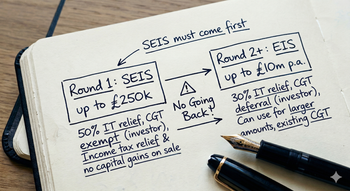 SEIS must come first
Round 1: SEIS
up to £250k
Round 2+: EIS
up to £10m p.a.
No Going
Back!
50% IT relief, CGT
exempt (investor),
Income tax relief &
no capital gains on sale
30% IT relief, CGT
deferral (investor),
Can use for larger
amounts, existing CGT